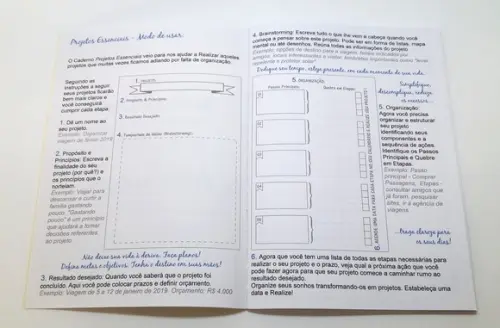 Projetos Essenciais - Modo de usar
O Caderno Projetos Essenciais veio para nos ajudar a Realizar aqueles
projetos que muitas vezes ficamos adiando por falta de organização.
Seguindo as
instruções a seguir
seus projetos ficarão
bem mais claros e
você conseguirá
cumprir cada etapa.
1. Dê um nome ao
seu projeto.
Exemplo: Organizar
viagem de férias 2019
2. Propósito e
Princípios: Escreva a
finalidade do seu
projeto (por quê?) e
os princípios que o
norteiam.
Exemplo: Viajar para
descansar e curtir a
família gastando
pouco. "Gastando
pouco" é um princípio
que ajudará a tomar
decisões referentes
ao projeto.
1. PROJETO:
2. Propósito & Princípios:
3. Resultado Desejado:
4. Tempestade de Ideias (Brainstorming):
Não deixe sua vida à deriva. Faça planos!
Defina metas e objetivos. Tenha o destino em suas mãos!
3. Resultado desejado: Quando você saberá que o projeto foi
concluído. Aqui você pode colocar prazos e definir orçamento.
Exemplo: Viagem de 5 a 12 de janeiro de 2019. Orçamento: R$ 4.000
4. Brainstorming: Escreva tudo o que lhe vem à cabeça quando você
começa a pensar sobre este projeto. Pode ser em forma de listas, mapa
mental ou até desenhos. Reúna todas as informações do projeto
Dedique seu tempo, esteja presente em cada momento da sua vida.
5. ORGANIZAÇÃO:
Passos Principais
Quebra em Etapas
6. AGORA, UMA DATA PARA CADA ETAPA
Simplifique,
descomplique, reduza
os excessos...
5. Organização:
Agora você precisa
organizar e estruturar
seu projeto
identificando seus
componentes e a
sequência de ações.
Identifique os Passos
Principais e Quebre
em Etapas.
Exemplo: Passo
principal - Comprar
Passagens, Etapas -
consultar amigos que
já foram, pesquisar
sites, ir à agência de
viagens
...traga clareza para
os seus dias!
6. Agora que você tem uma lista de todas as etapas necessárias para
realizar o seu projeto e o prazo, veja qual a próxima ação que você
pode fazer agora para que seu projeto comece a caminhar rumo ao
resultado desejado.
Organize seus sonhos transformando-os em projetos. Estabeleça uma
data e Realize!